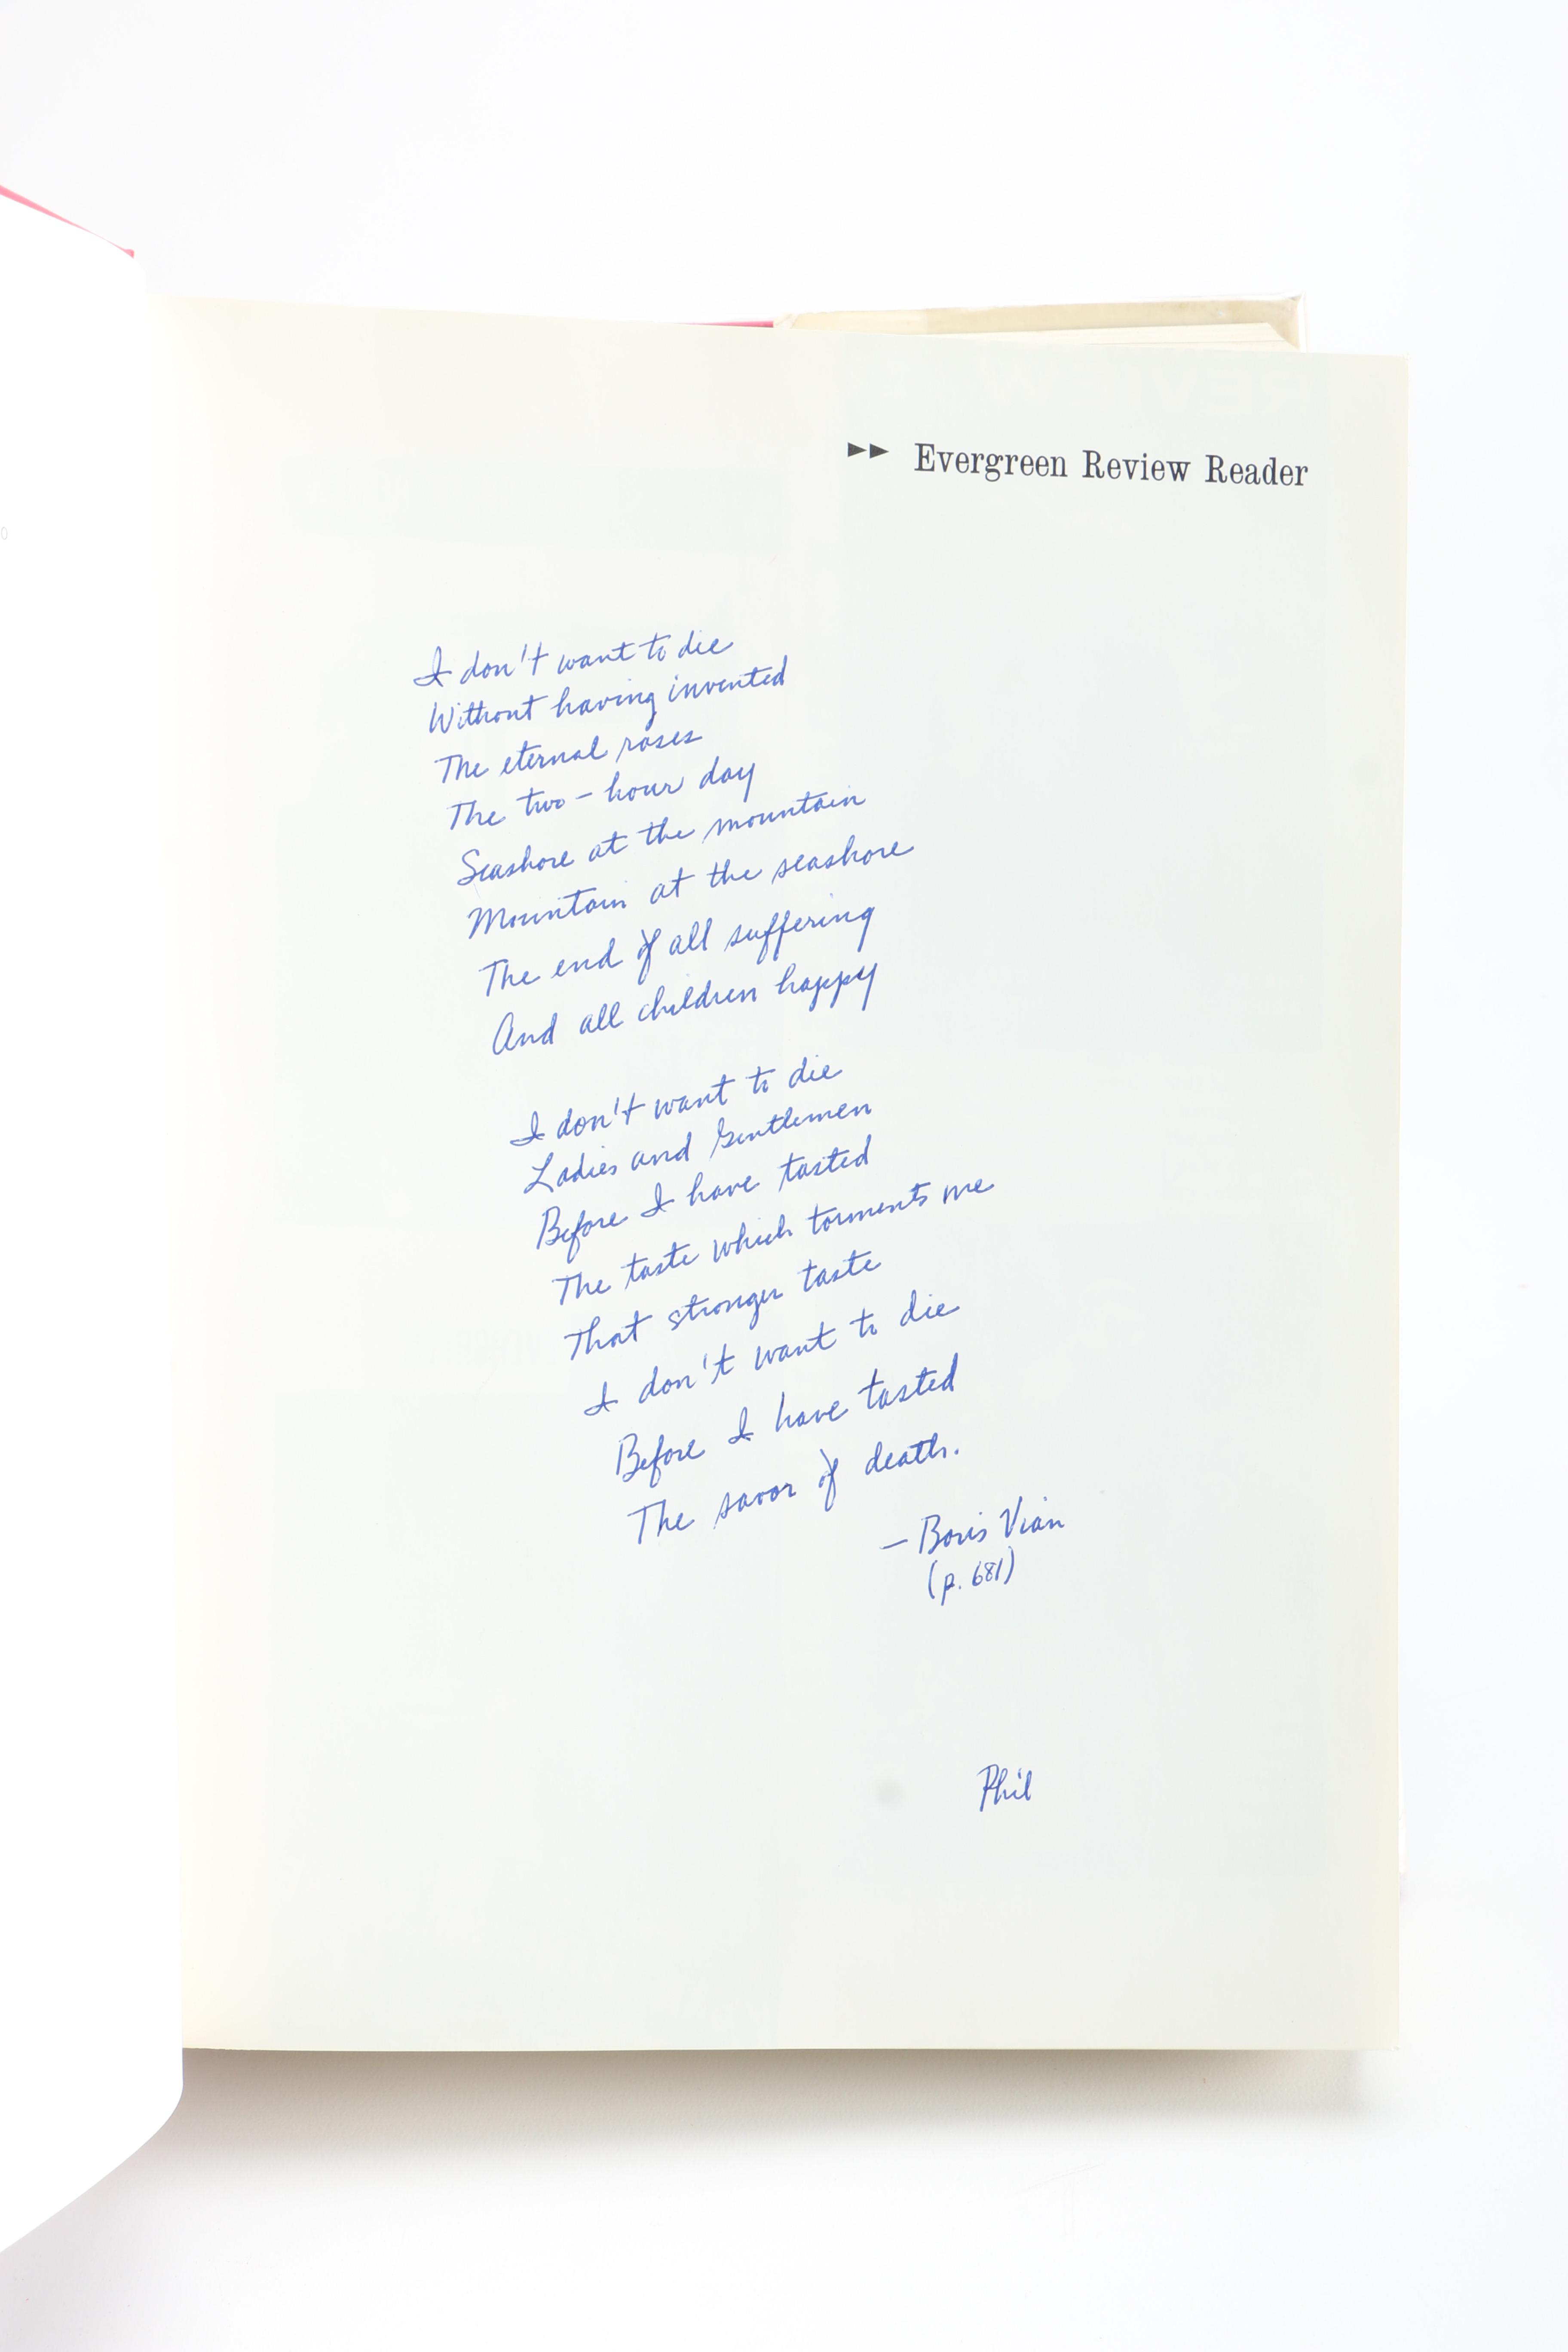 ►► Evergreen Review Reader
I don't want to die
Without having invented
The eternal roses
The two-hour day
Seashore at the mountain
Mountain at the seashore
The end of all suffering
And all children happy
I don't want to die
Ladies and Gentlemen
Before I have tasted
The taste which torments me
That stronger taste
I don't want to die
Before I have tasted
The savor of death.
— Boris Vian
(p. 681)
Phil